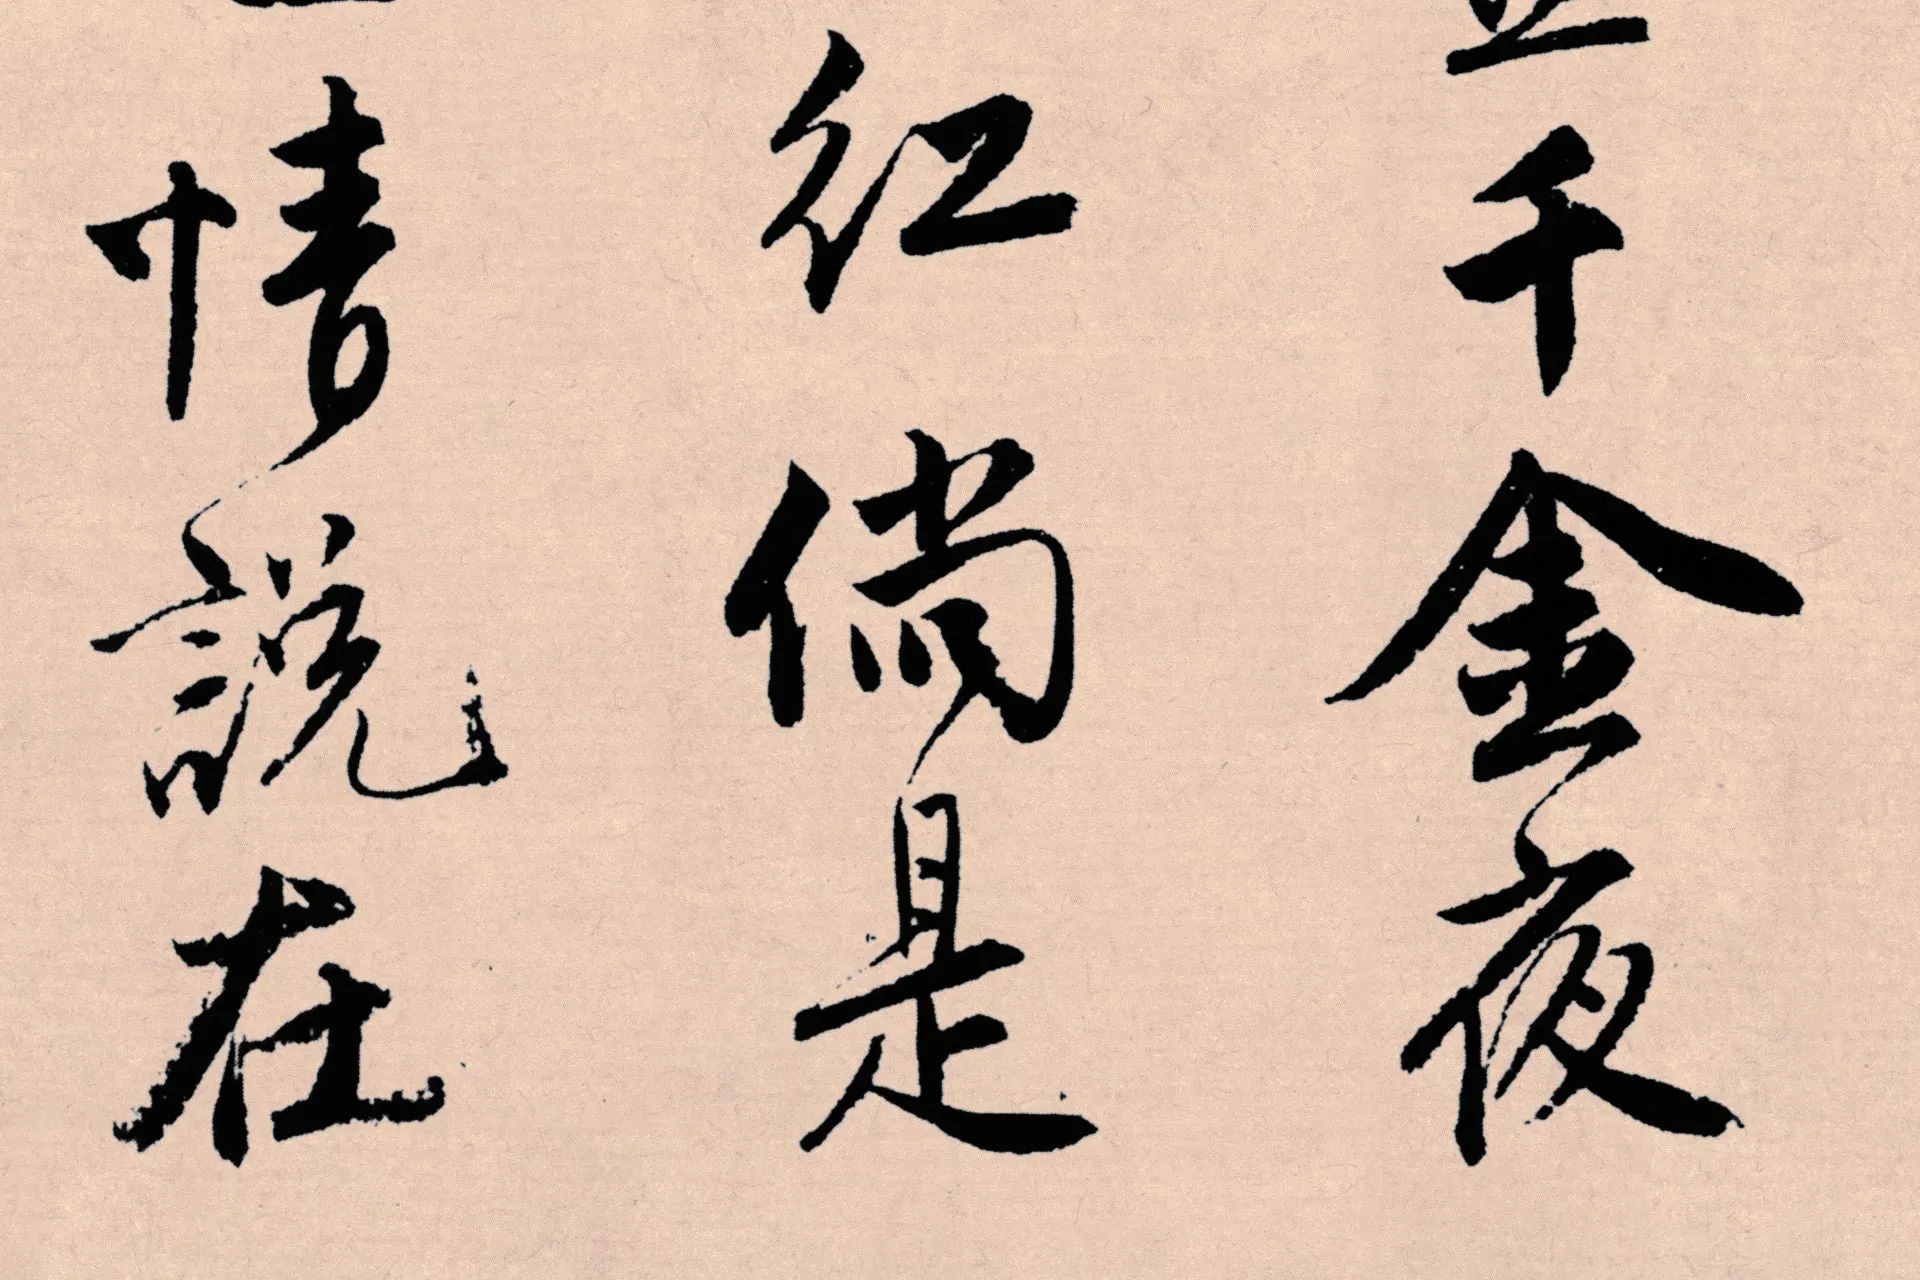 千金夜
红倘是
情説在